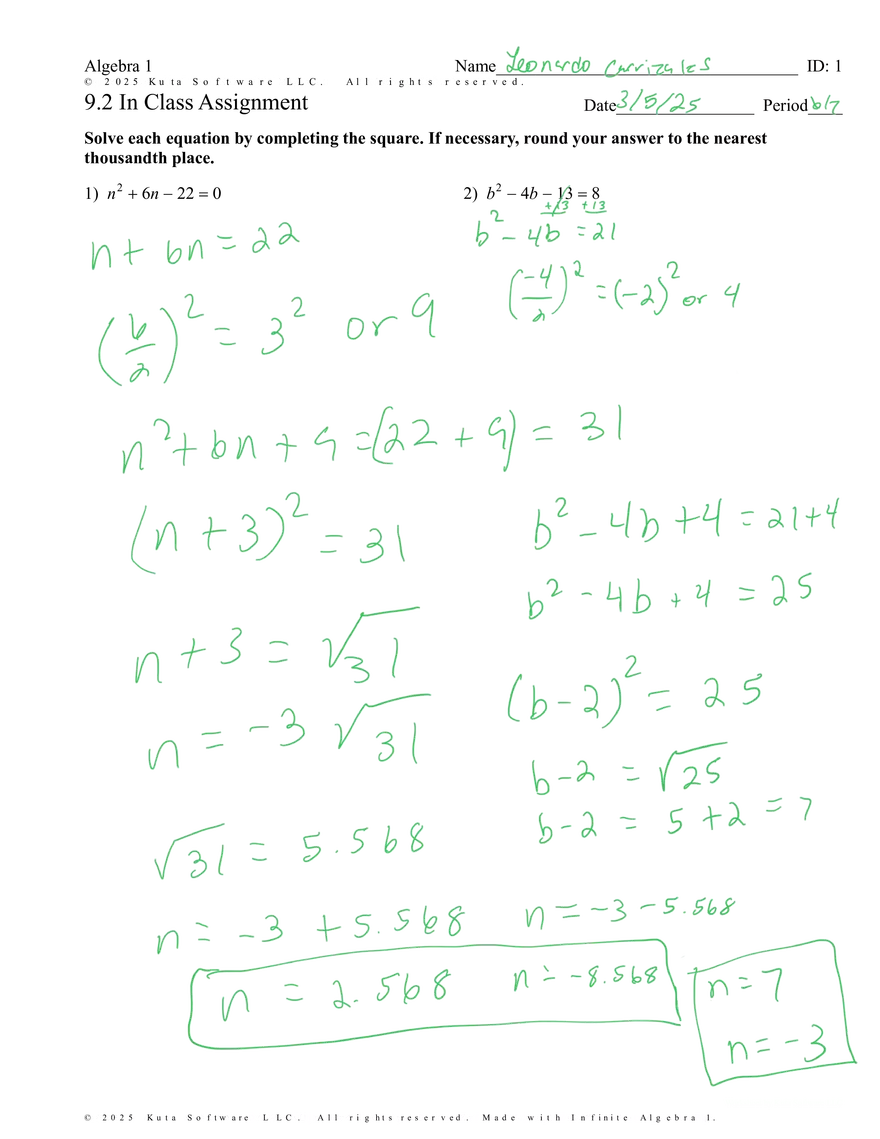 Algebra 1 Name Leonardo Carrizales ID: 1
© 2025 Kuta Software LLC. All rights reserved.
9.2 In Class Assignment Date 3/5/25 Period 6/7
Solve each equation by completing the square. If necessary, round your answer to the nearest
thousandth place.
1) n² + 6n − 22 = 0
n + 6n = 22
(6/2)² = 3² or 9
n² + 6n + 9 = (22 + 9) = 31
(n + 3)² = 31
n + 3 = √31
n = -3 √31
√31 = 5.568
n = -3 + 5.568 n = -3 - 5.568
n = 2.568 n = -8.568
2) b² − 4b − 13 = 8
+13 +13
b² - 4b = 21
(-4/2)² = (-2)² or 4
b² - 4b + 4 = 21 + 4
b² - 4b + 4 = 25
(b - 2)² = 25
b - 2 = √25
b - 2 = 5 + 2 = 7
n = 7
n = -3
© 2025 Kuta Software LLC. All rights reserved. Made with Infinite Algebra 1.